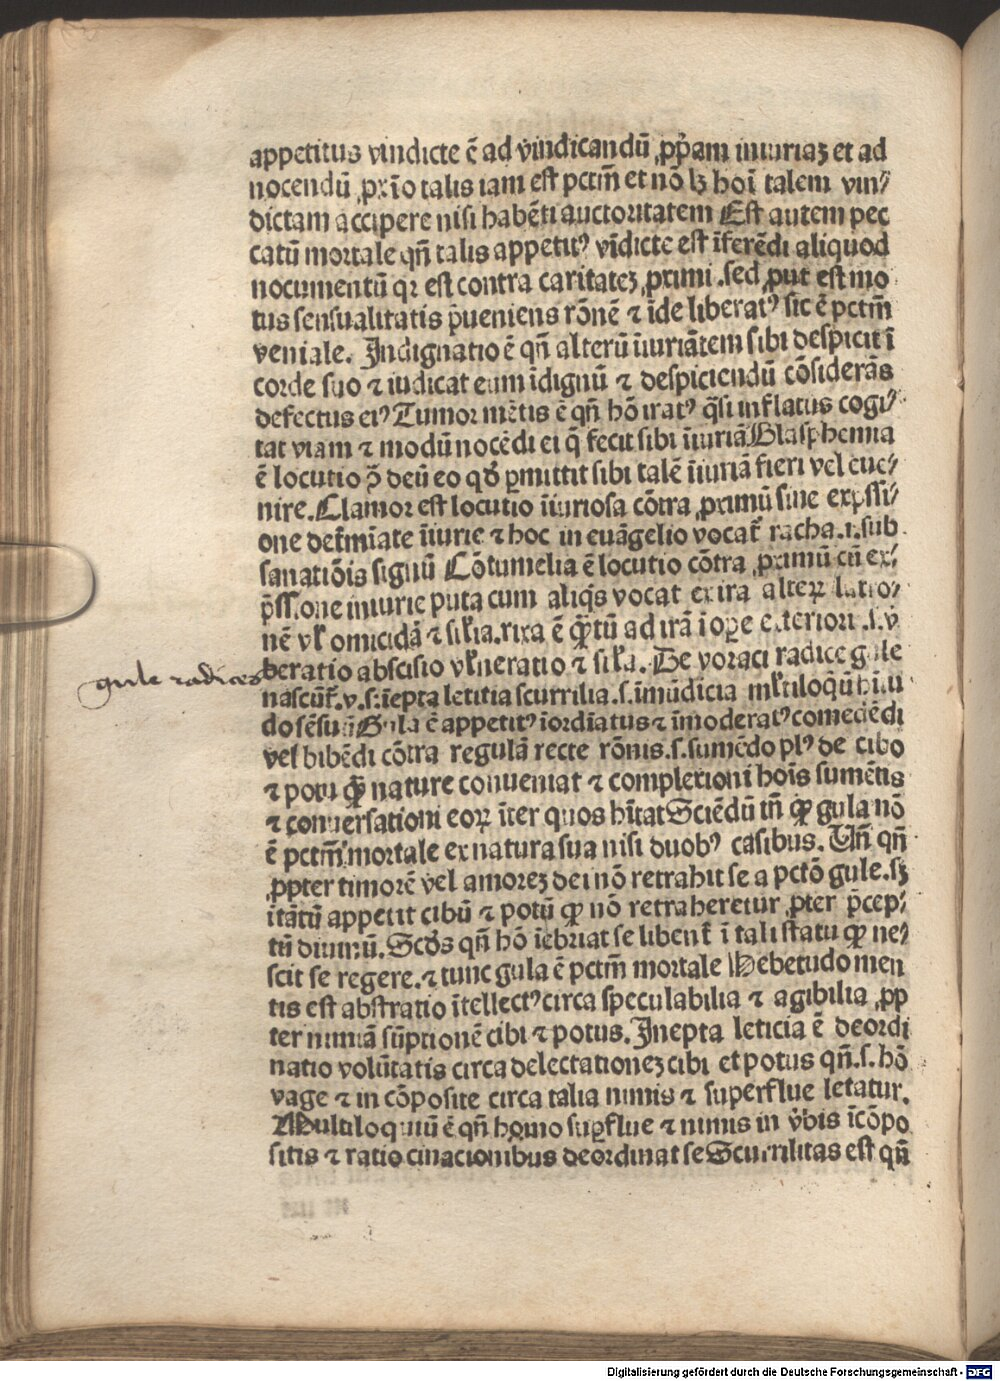 appetitus vindicte ē ad vindicandū ꝓpͥam iniuriaꝫ et ad
nocendū ꝓxīo talis iam est pctm̄ et nō lꝫ hoī talem vin⸗
dictam accipere nisi habēti auctoritatem Est autem pec
catū mortale qn̄ talis appetitꝰ vīdicte est īferēdi aliquod
nocumentū qꝛ est contra caritateꝫ ꝓximi .sed ꝓut est mo
tus sensualitatis p̄ueniens rōnē ⁊ īde liberatꝰ sic ē pctm̄
veniale. Indignatio ē qn̄ alterū īiuriātem sibi despicit ī
corde suo ⁊ iudicat eum īdignū ⁊ despiciendū cōsiderās
defectus eiꝰ Tumor mētis ē qn̄ hō iratꝰ q̄si inflatus cogi⸗
tat viam ⁊ modū nocēdi ei q̄ fecit sibi īiuriā Blasphemia
ē locutio ꝯ̄ deū eo qd̓ ꝑmittit sibi talē īiuriā fieri vel eue⸗
nire. Clamor est locutio īiuriosa cōtra ꝓximū sine exp̄ssi⸗
one det̓mīate īiurie ⁊ hoc in euāgelio vocat᷑ racha .i. sub
sanatiōis signū Cōtumelia ē locutio cōtra ꝓximū cū ex⸗
p̄ss.one iniurie puta cum aliqͥs vocat ex ira alteꝝ latro⸗
nē vl̓ omicidā ⁊ sil̓ia. rixa ē qn̄tū ad irā ī oꝑe exteriori .s. v̓
beratio abscisio vl̓neratio ⁊ sil̓ia. De voraci radice gule
gule radices
nascūt᷑ .v. s. īepta letitia scurrilia .s. īmūdicia ml̓tiloqͥū hebitu
do sēsuū Gula ē appetitꝰ īordīatus ⁊ īmoderatꝰ comedēdi
vel bibēdi cōtra regulā recte rōnis .s. sumēdo plꝰ de cibo
⁊ potu qͣꝫ nature conueniat ⁊ complexioni hoīs sumētis
⁊ conuersationi eoꝝ īter quos hītat Sciēdū tn̄ ꝙ gula nō
ē pctm̄ mortale ex natura sua nisi duobꝰ casibus. Vn̄ qn̄
ꝓpter timorē vel amoreꝫ dei nō retrahit se a pctō gule .sꝫ
ītātū appetit cibū ⁊ potū ꝙ nō retraheretur ꝓpter p̄cep⸗
tū diuinū. Scd̓s qn̄ hō īebriat se libent᷑ ī tali statu ꝙ ne⸗
scit se regere. ⁊ tunc gula ē pctm̄ mortale Hebetudo men
tis est abstratio ītellectꝰ circa speculabilia ⁊ agibilia ꝓp
ter nimiā sūptionē cibi ⁊ potus. Inepta leticia ē deordi
natio volūtatis circa delectationeꝫ cibi et potus qn̄ .s. hō
vage ⁊ in cōposite circa talia nimis ⁊ superflue letatur.
Multiloquiū ē qn̄ homo suꝑflue ⁊ nimis in v̓bis īcōpo
sitis ⁊ ratio cinacionibus deordinat se Scurrilitas est qn̄
Digitalisierung gefördert durch die Deutsche Forschungsgemeinschaft - DFG